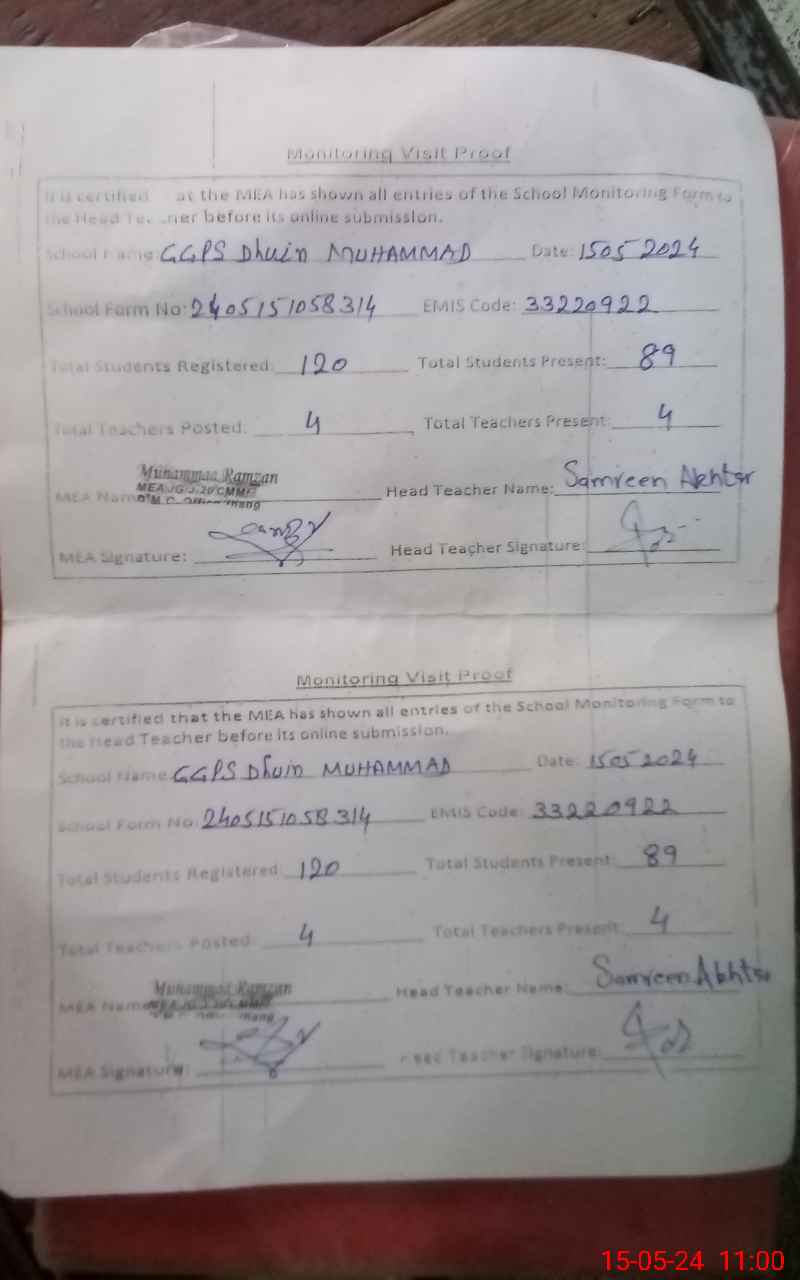 Monitoring Visit Proof
It is certified at the MEA has shown all entries of the School Monitoring Form to
the Head Teacher before its online submission.
School Name: GGPS Dhuin MUHAMMAD Date: 15 05 2024
School Form No: 2405151058314 EMIS Code: 33220922
Total Students Registered: 120 Total Students Present: 89
Total Teachers Posted: 4 Total Teachers Present: 4
Muhammad Ramzan
MEA Name Head Teacher Name: Samreen Akhter
MEA Signature: Head Teacher Signature:
Monitoring Visit Proof
It is certified that the MEA has shown all entries of the School Monitoring Form to
the Head Teacher before its online submission.
School Name: GGPS Dhuin MUHAMMAD Date: 15 05 2024
School Form No: 2405151058314 EMIS Code: 33220922
Total Students Registered: 120 Total Students Present: 89
Total Teachers Posted: 4 Total Teachers Present: 4
Muhammad Ramzan
MEA Name Head Teacher Name: Samreen Akhter
MEA Signature: Head Teacher Signature:
15-05-24 11:00